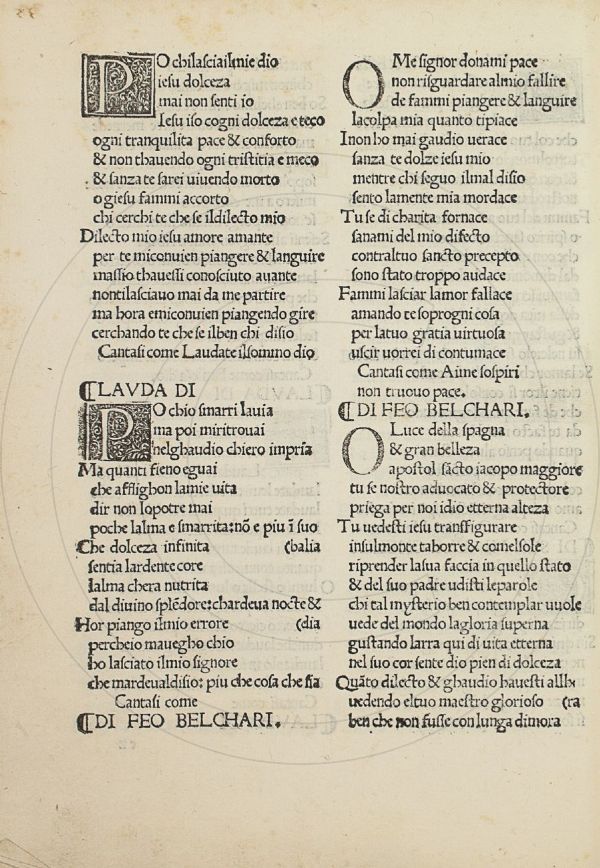 PO chilasciailmie dio
iesu dolceza
mai non senti io
Iesu iso cogni dolceza e teco
ogni tranquilita pace & conforto
& non thauendo ogni tristitia e meco
& sanza te sarei uiuendo morto
o giesu fammi accorto
chi cerchi te che se ildilecto mio
Dilecto mio iesu amore amante
per te miconuien piangere & languire
massio thauessi conosciuto auante
nontilasciauo mai da me partire
ma hora emiconuien piangendo gire
cerchando te che se ilben chi disio
Cantasi come Laudate ilsommo dio
¶LAVDA DI
PO chio smarri lauia
ma poi miritrouai
nelghaudio chiero impria
Ma quanti fieno eguai
che afflighon lamie uita
dir non lopotre mai
poche lalma e smarrita: nō e piu ī suo
Che dolceza infinita (balia
sentia lardente core
lalma chera nutrita
dal diuino splēdore: chardeua nocte &
Hor piango ilmio errore (dia
percheio maueggho chio
ho lasciato ilmio signore
che mardeualdisio: piu che cosa che sia
Cantasi come
¶DI FEO BELCHARI.
OMe signor donami pace
non risguardare almio fallire
de fammi piangere & languire
lacolpa mia quanto tipiace
Inon ho mai gaudio uerace
sanza te dolze iesu mio
mentre chi seguo ilmal disio
sento lamente mia mordace
Tu se di charita fornace
sanami del mio difecto
contraltuo sancto precepto
sono stato troppo audace
Fammi lasciar lamor fallace
amando te soprogni cosa
per latuo gratia uirtuosa
uscir uorrei di contumace
Cantasi come Aime sospiri
non truouo pace.
¶DI FEO BELCHARI.
O Luce della spagna
& gran belleza
apostol sācto iacopo maggiore
tu se nostro aduocato & protectore
priega per noi idio etterna alteza
Tu uedesti iesu transfigurare
insulmonte taborre & comelsole
riprender lasua faccia in quello stato
& del suo padre udisti leparole
chi tal mysterio ben contemplar uuole
uede del mondo lagloria superna
gustando larra qui di uita etterna
nel suo cor sente dio pien di dolceza
Quāto dilecto & ghaudio hauesti allho
uedendo eltuo maestro glorioso (ra
ben che non fusse con lunga dimora